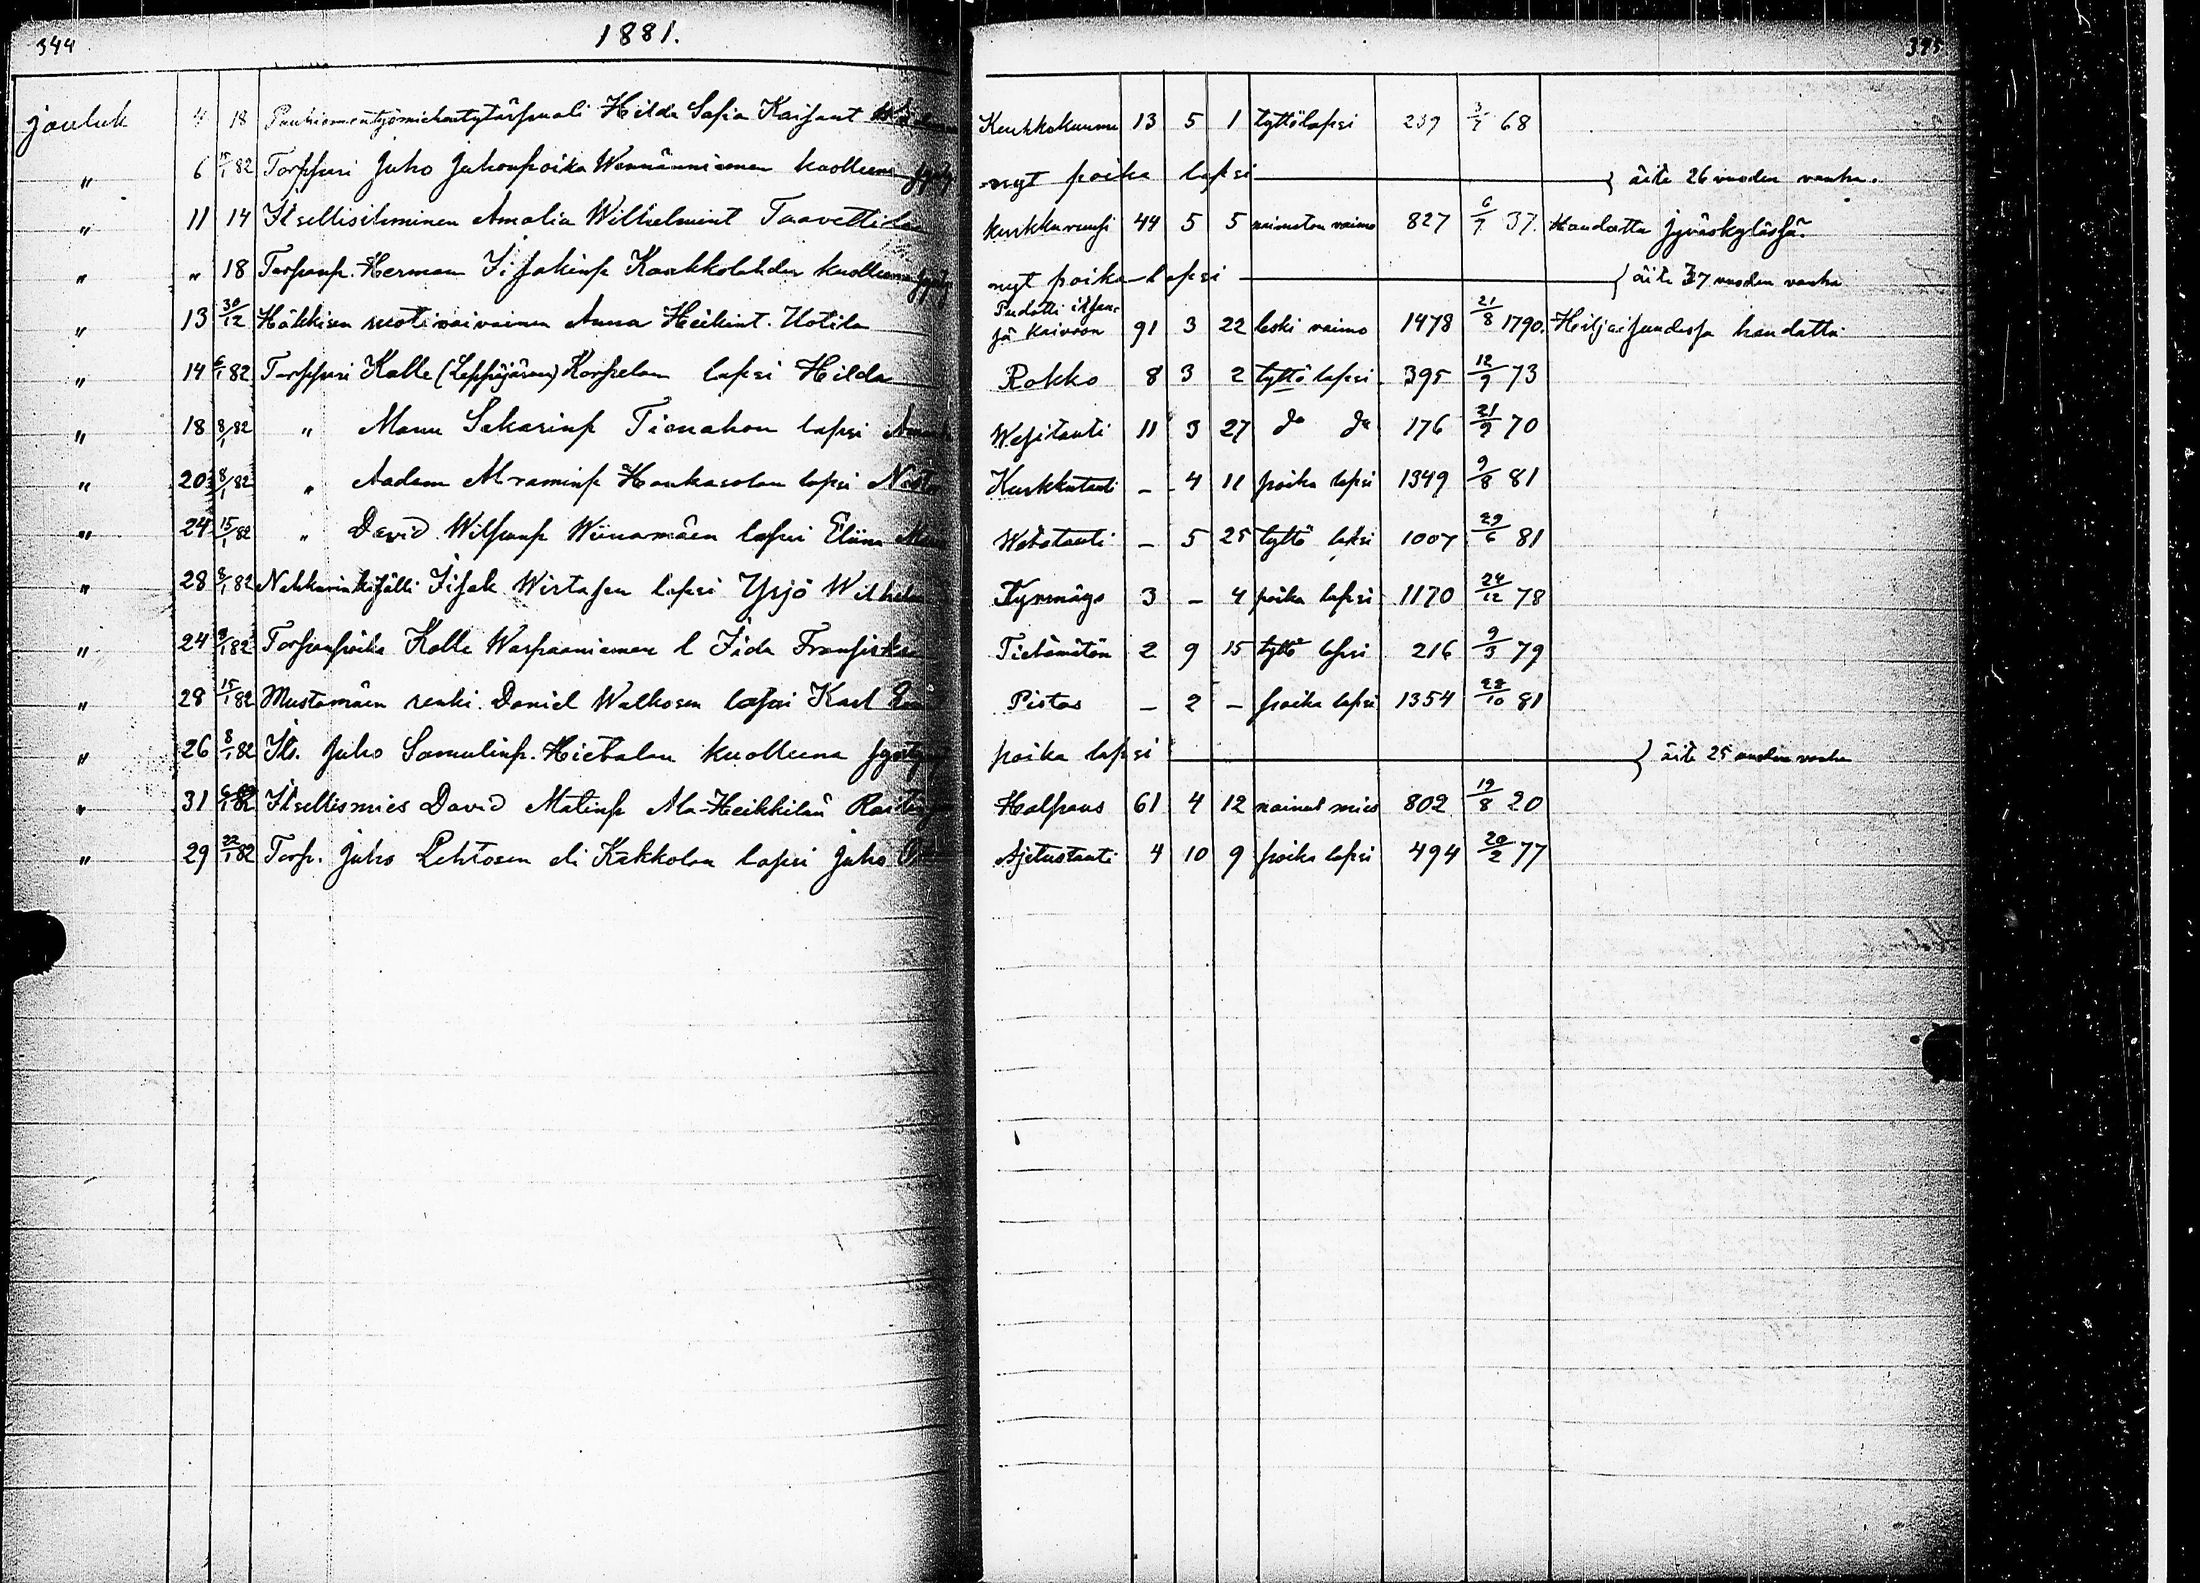 344 1881. 345
jouluk 4 18 Hilda Sofia Kaisant Kurkkokuumu 13 5 1 tyttölapsi 239 3/7 68
" 6 15/1 82 Torppari Juho Juhonpoika Wennänniemen kuolleena synty nyt poika lapsi } äite 26 vuoden vanha.
" 11 14 Itsellisihminen Amalia Wilhelmint Taavettila kurkkuruusi 44 5 5 naimaton vaimo 827 6/7 37. Haudattu Jyväskylässä.
" " 18 Torpanp. Herman Iisakinp Kaukkolahden kuolleena synty nyt poika lapsi } äite 37 vuoden vanha
" 13 30/12 Häkkisen ruotivaivainen Anna Heikint. Uotila Pudotti itsensä kaivoon 91 3 22 leski vaimo 1478 21/8 1790. Hiljaisuudessa haudattu
" 14 6/1 82 Torppari Kalle (Leppäjärven) Korpelan lapsi Hilda Rokko 8 3 2 tyttö lapsi 395 12/9 73
" 18 8/1 82 " Manu Sakarinp Tienahon lapsi Wesitauti 11 3 27 do do 176 21/9 70
" 20 8/1 82 " Aadam Abraminp Honkasalon lapsi Nestor Kurkkutauti - 4 11 poika lapsi 1349 9/8 81
" 24 15/1 82 " David Wilpunp Wiinamäen lapsi Eliina Maria Watsatauti - 5 25 tyttö lapsi 1007 29/6 81
" 28 8/1 82 Nahkurinkisälli Iisak Wirtasen lapsi Yrjö Wilhelm Kyrmäys 3 - 4 poika lapsi 1170 24/12 78
" 24 9/1 82 Torpanpoika Kalle Warpaaniemen l Iida Fransiska Tietämätön 2 9 15 tyttö lapsi 216 9/3 79
" 28 15/1 82 Mustamäen renki Daniel Walkosen lapsi Karl Pistos - 2 - poika lapsi 1354 28/10 81
" 26 8/1 82 Its. Juho Samulinp. Hietalan kuolleena syntynyt poika lapsi } äite 25 vuoden vanha
" 31 6/1 82 Itsellismies David Matinp Ala-Heikkilän Halpaus 61 4 12 nainut mies 802 19/8 20
" 29 22/1 82 Torp. Juho Lehtosen eli Kakkolan lapsi Juho Ajetustauti 4 10 9 poika lapsi 494 20/2 77